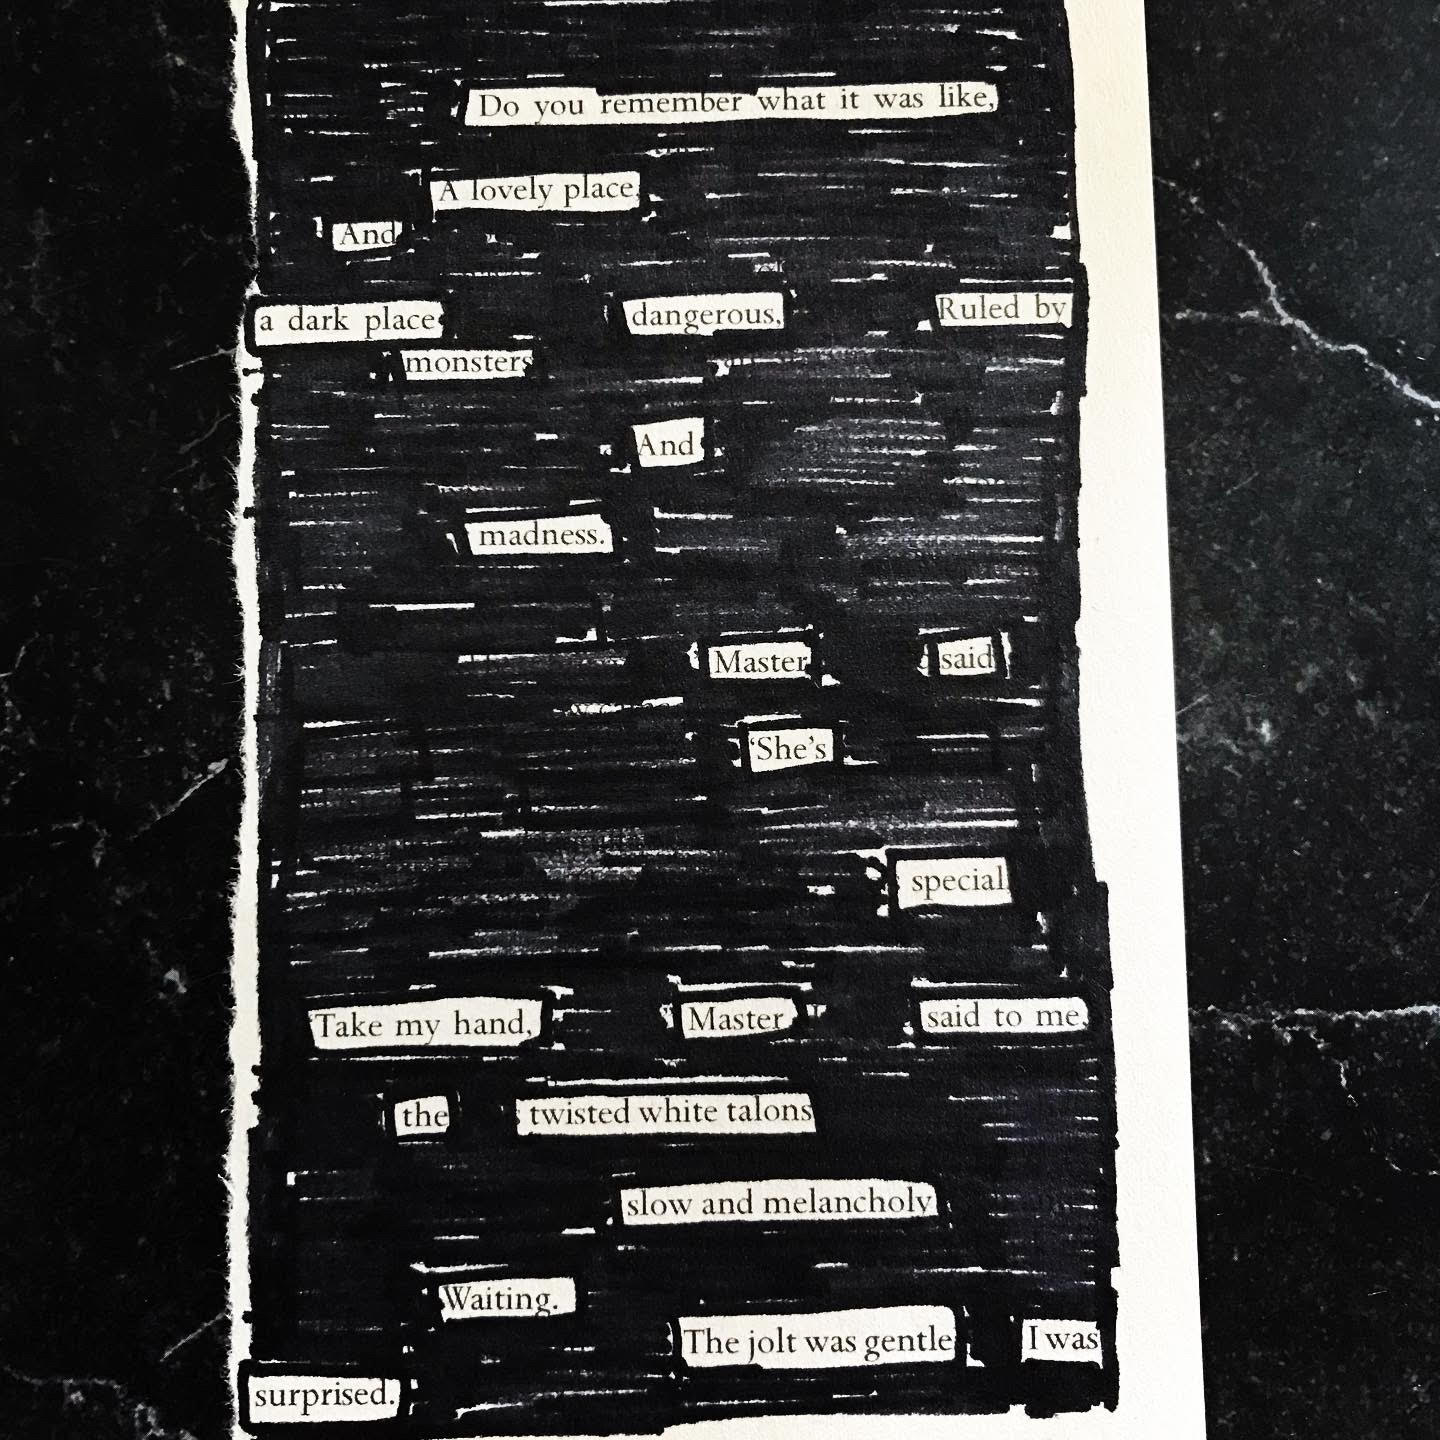 Do you remember what it was like,
A lovely place
And
a dark place dangerous, Ruled by
monsters
And
madness.
Master said
‘She’s
special
Take my hand, Master said to me
the twisted white talons
slow and melancholy
Waiting.
The jolt was gentle I was
surprised.